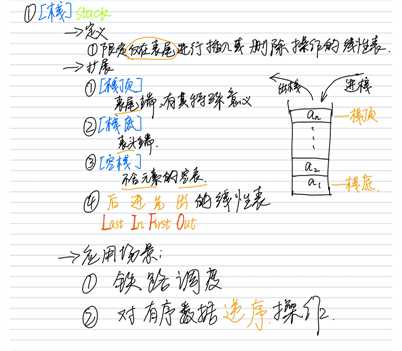 ①[栈] stack
→定义
①限定仅在表尾进行插入或删除操作的线性表.
→扩展
①[栈顶]
表尾端,有其特殊意义
②[栈底]
表头端.
③[空栈]
不含元素的空表.
④后进先出的线性表
Last In First Out
出栈 进栈
an —栈顶
a2
a1 —栈底.
→应用场景:
① 铁路调度
② 对有序数据逆序操作.